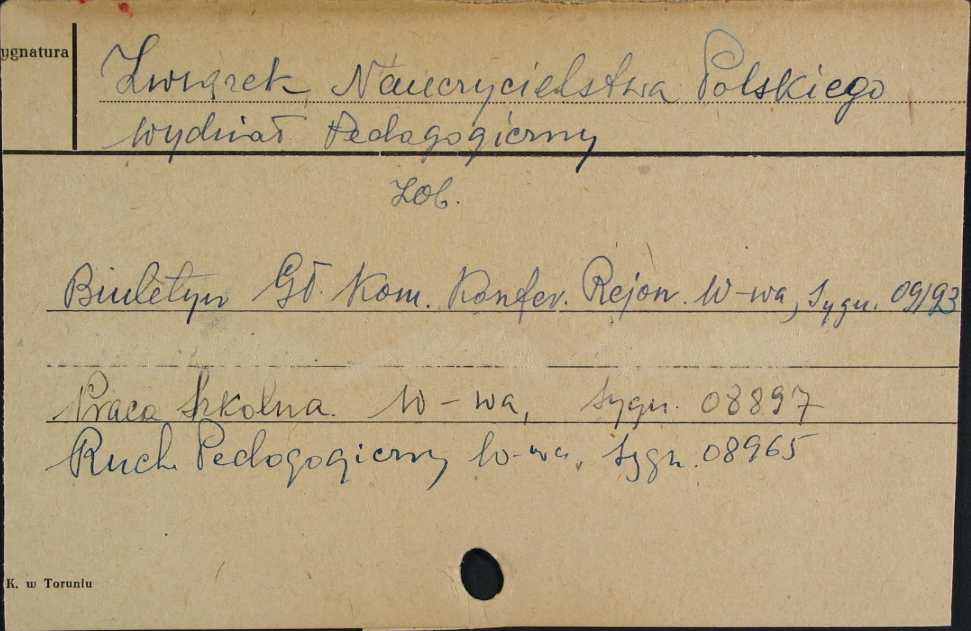 ygnatura
Związek Nauczycielstwa Polskiego
Wydział Pedagogiczny
Zob.
Biuletyn Gł. Kom. Konfer. Rejon. W-wa, Sygn. 09193
Praca Szkolna. W-wa, Sygn. 08897
Ruch Pedagogiczny W-wa, Sygn. 08965
K. w Toruniu